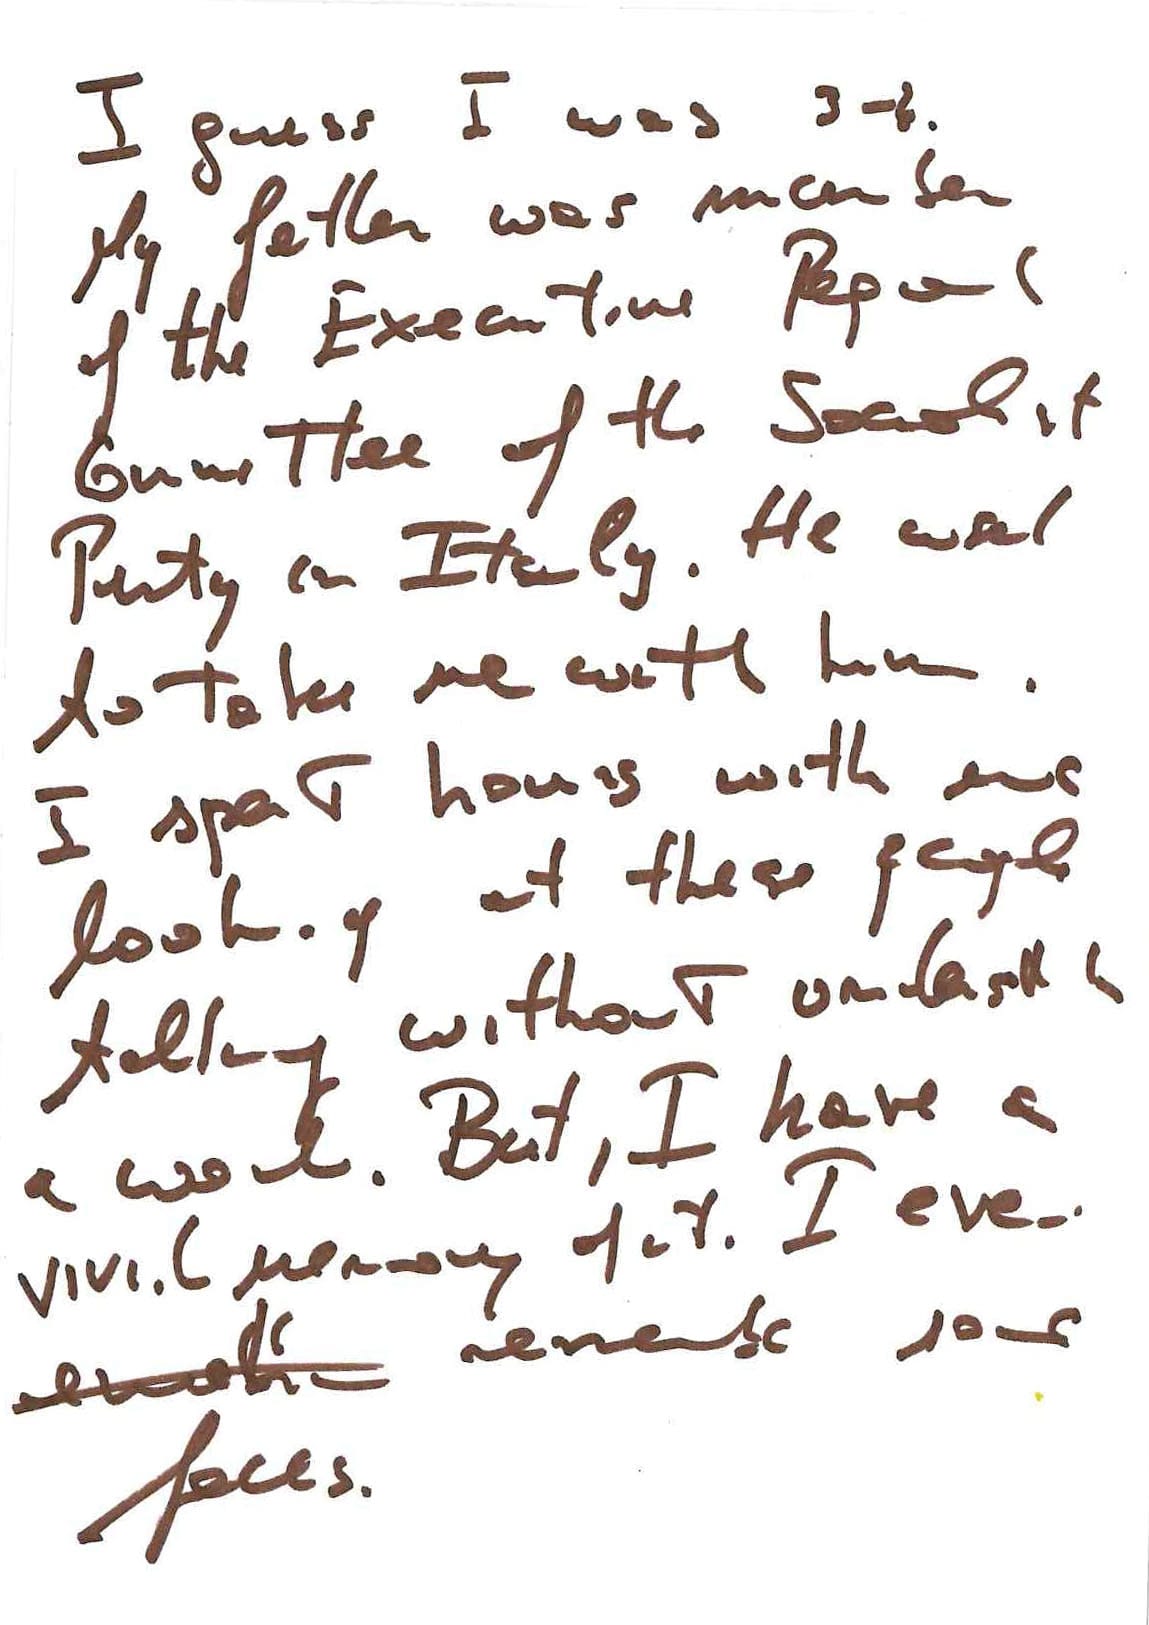 I guess I was 3-4.
My father was member
of the Executive Regional
Committee of the Socialist
Party in Italy. He used
to take me with him.
I spent hours with
looking at these people
talking without
a word. But, I have a
vivid memory of it. I even
remember some
faces.